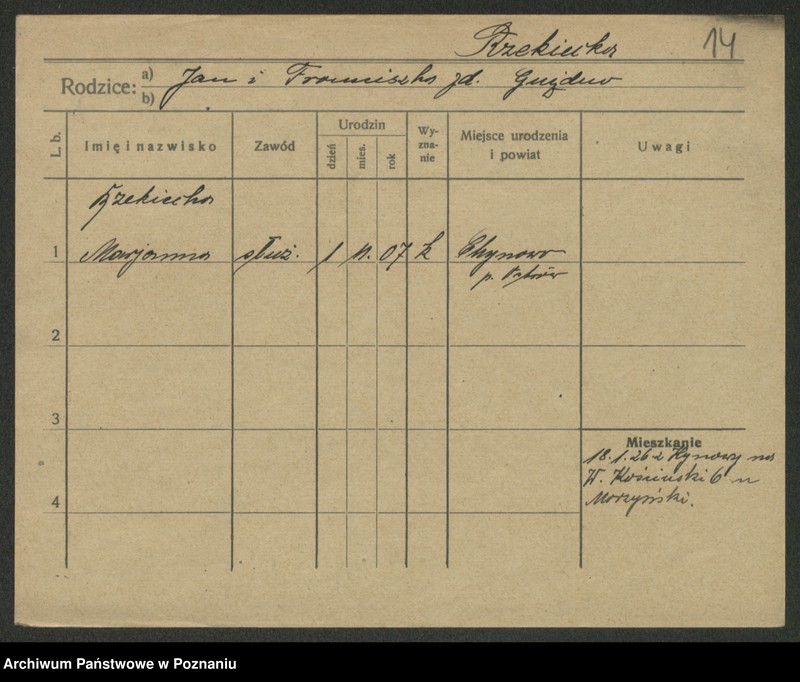 Rzekiecka 14
Rodzice: a) Jan i Franciszka zd.
b)
L. b. Imię i nazwisko Zawód Urodzin dzień mies. rok Wy-zna-nie Miejsce urodzenia i powiat Uwagi
Rzekiecka
1 Marjanna służ. 1 11. 07 k Chynowo
p. Ostrów
2
3
Mieszkanie
18.1.26 z Hynowy na
W.
4 Morzyński.
Archiwum Państwowe w Poznaniu